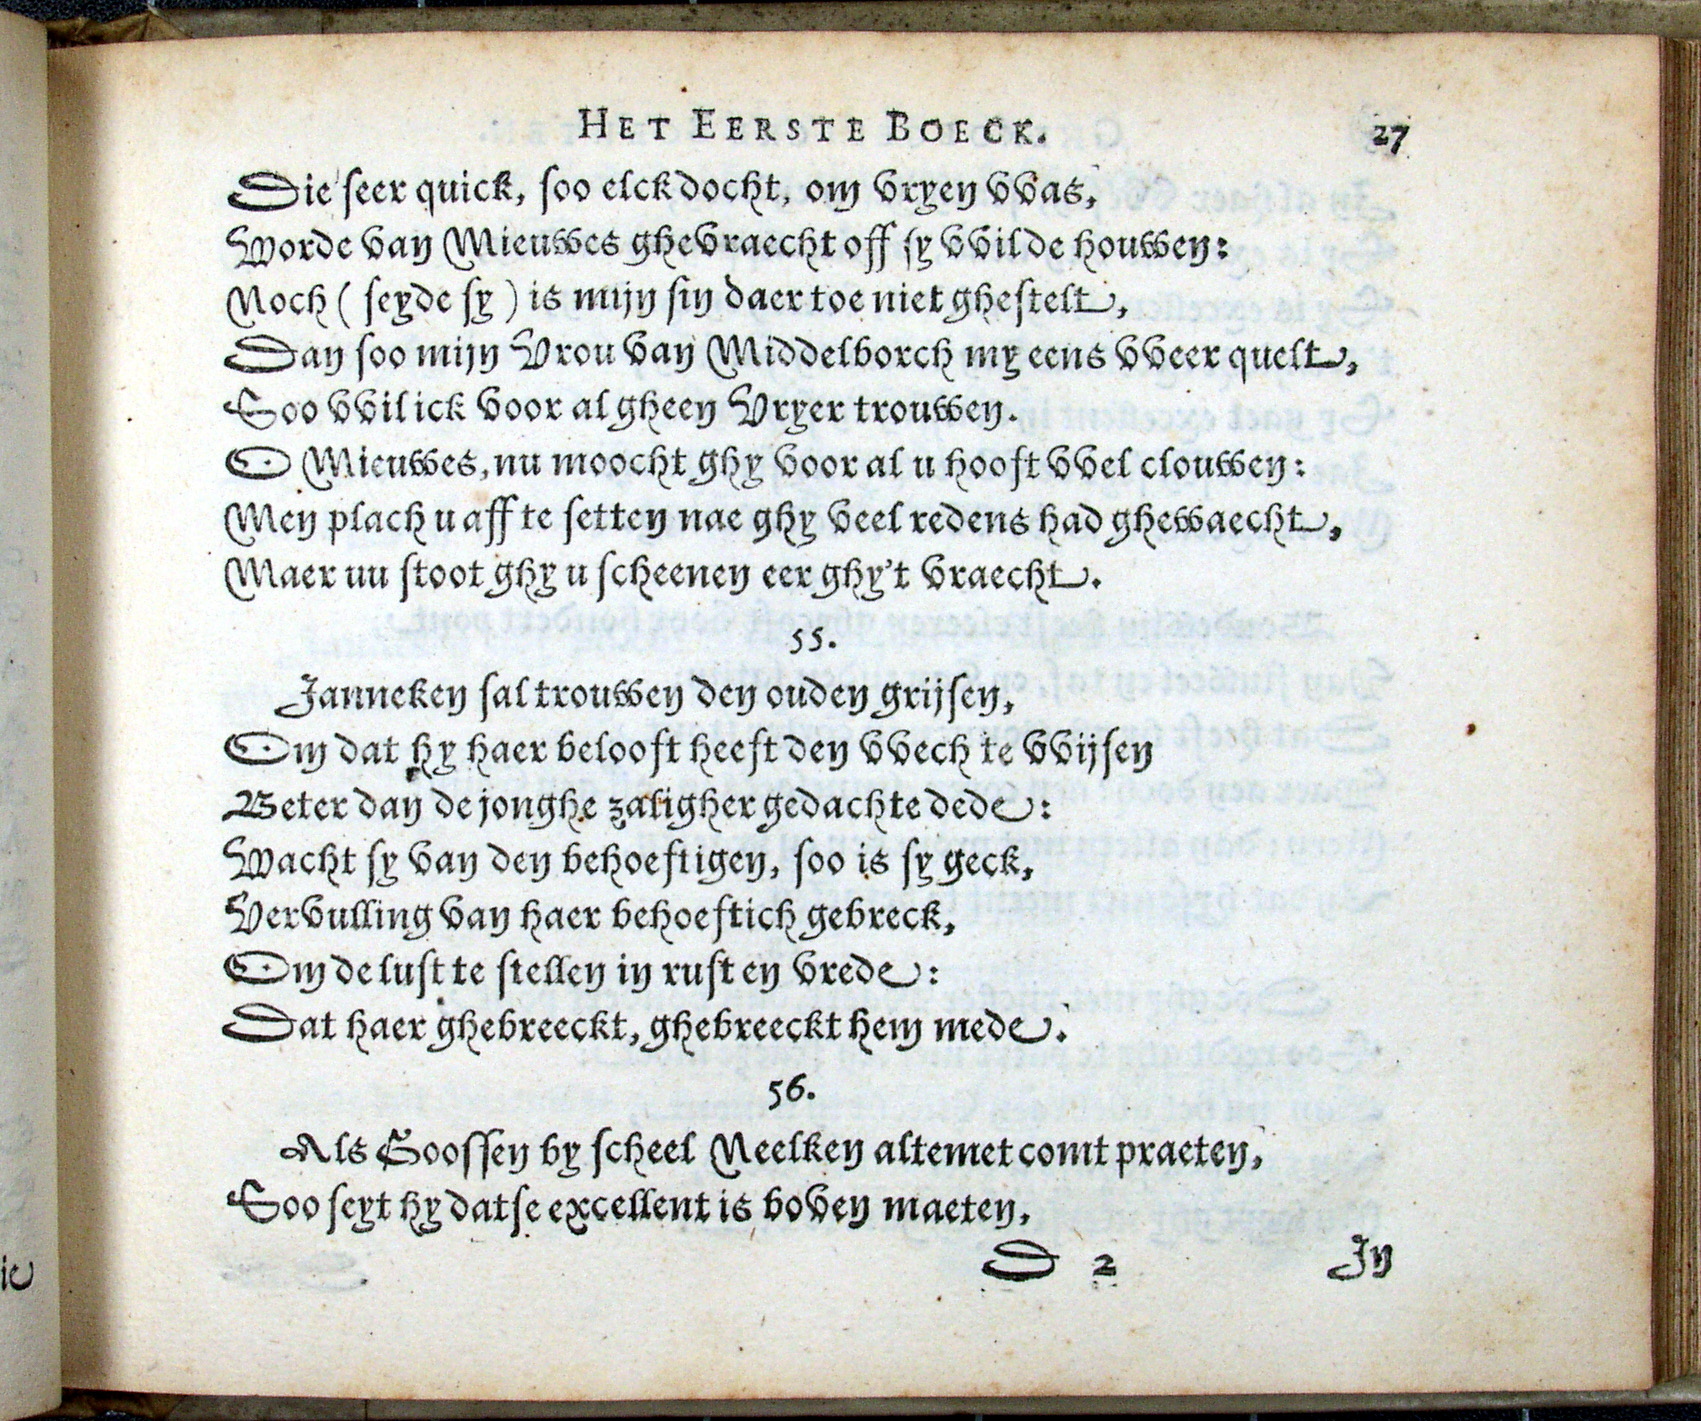 HET EERSTE BOECK. 27
Die seer quick, soo elck docht, om vryen vvas,
Worde van Mieuwes ghevraecht off sy vvilde houwen:
Noch ( seyde sy ) is mijn sin daer toe niet ghestelt,
Dan soo mijn Vrou van Middelborch my eens vveer quelt,
Soo vvil ick voor al gheen Vryer trouwen.
O Mieuwes, nu moocht ghy voor al u hooft vvel clouwen:
Men plach u aff te setten nae ghy veel redens had ghewaecht,
Maer nu stoot ghy u scheenen eer ghy't vraecht.
55.
Janneken sal trouwen den ouden grijsen,
Om dat hy haer belooft heeft den vvech te vvijsen
Beter dan de jonghe zaligher gedachte dede:
Wacht sy van den behoeftigen, soo is sy geck,
Vervulling van haer behoeftich gebreck,
Om de lust te stellen in rust en vrede:
Dat haer ghebreeckt, ghebreeckt hem mede.
56.
Als Goossen by scheel Neelken altemet comt praeten,
Soo seyt hy datse excellent is boven maeten,
D 2 In
ie